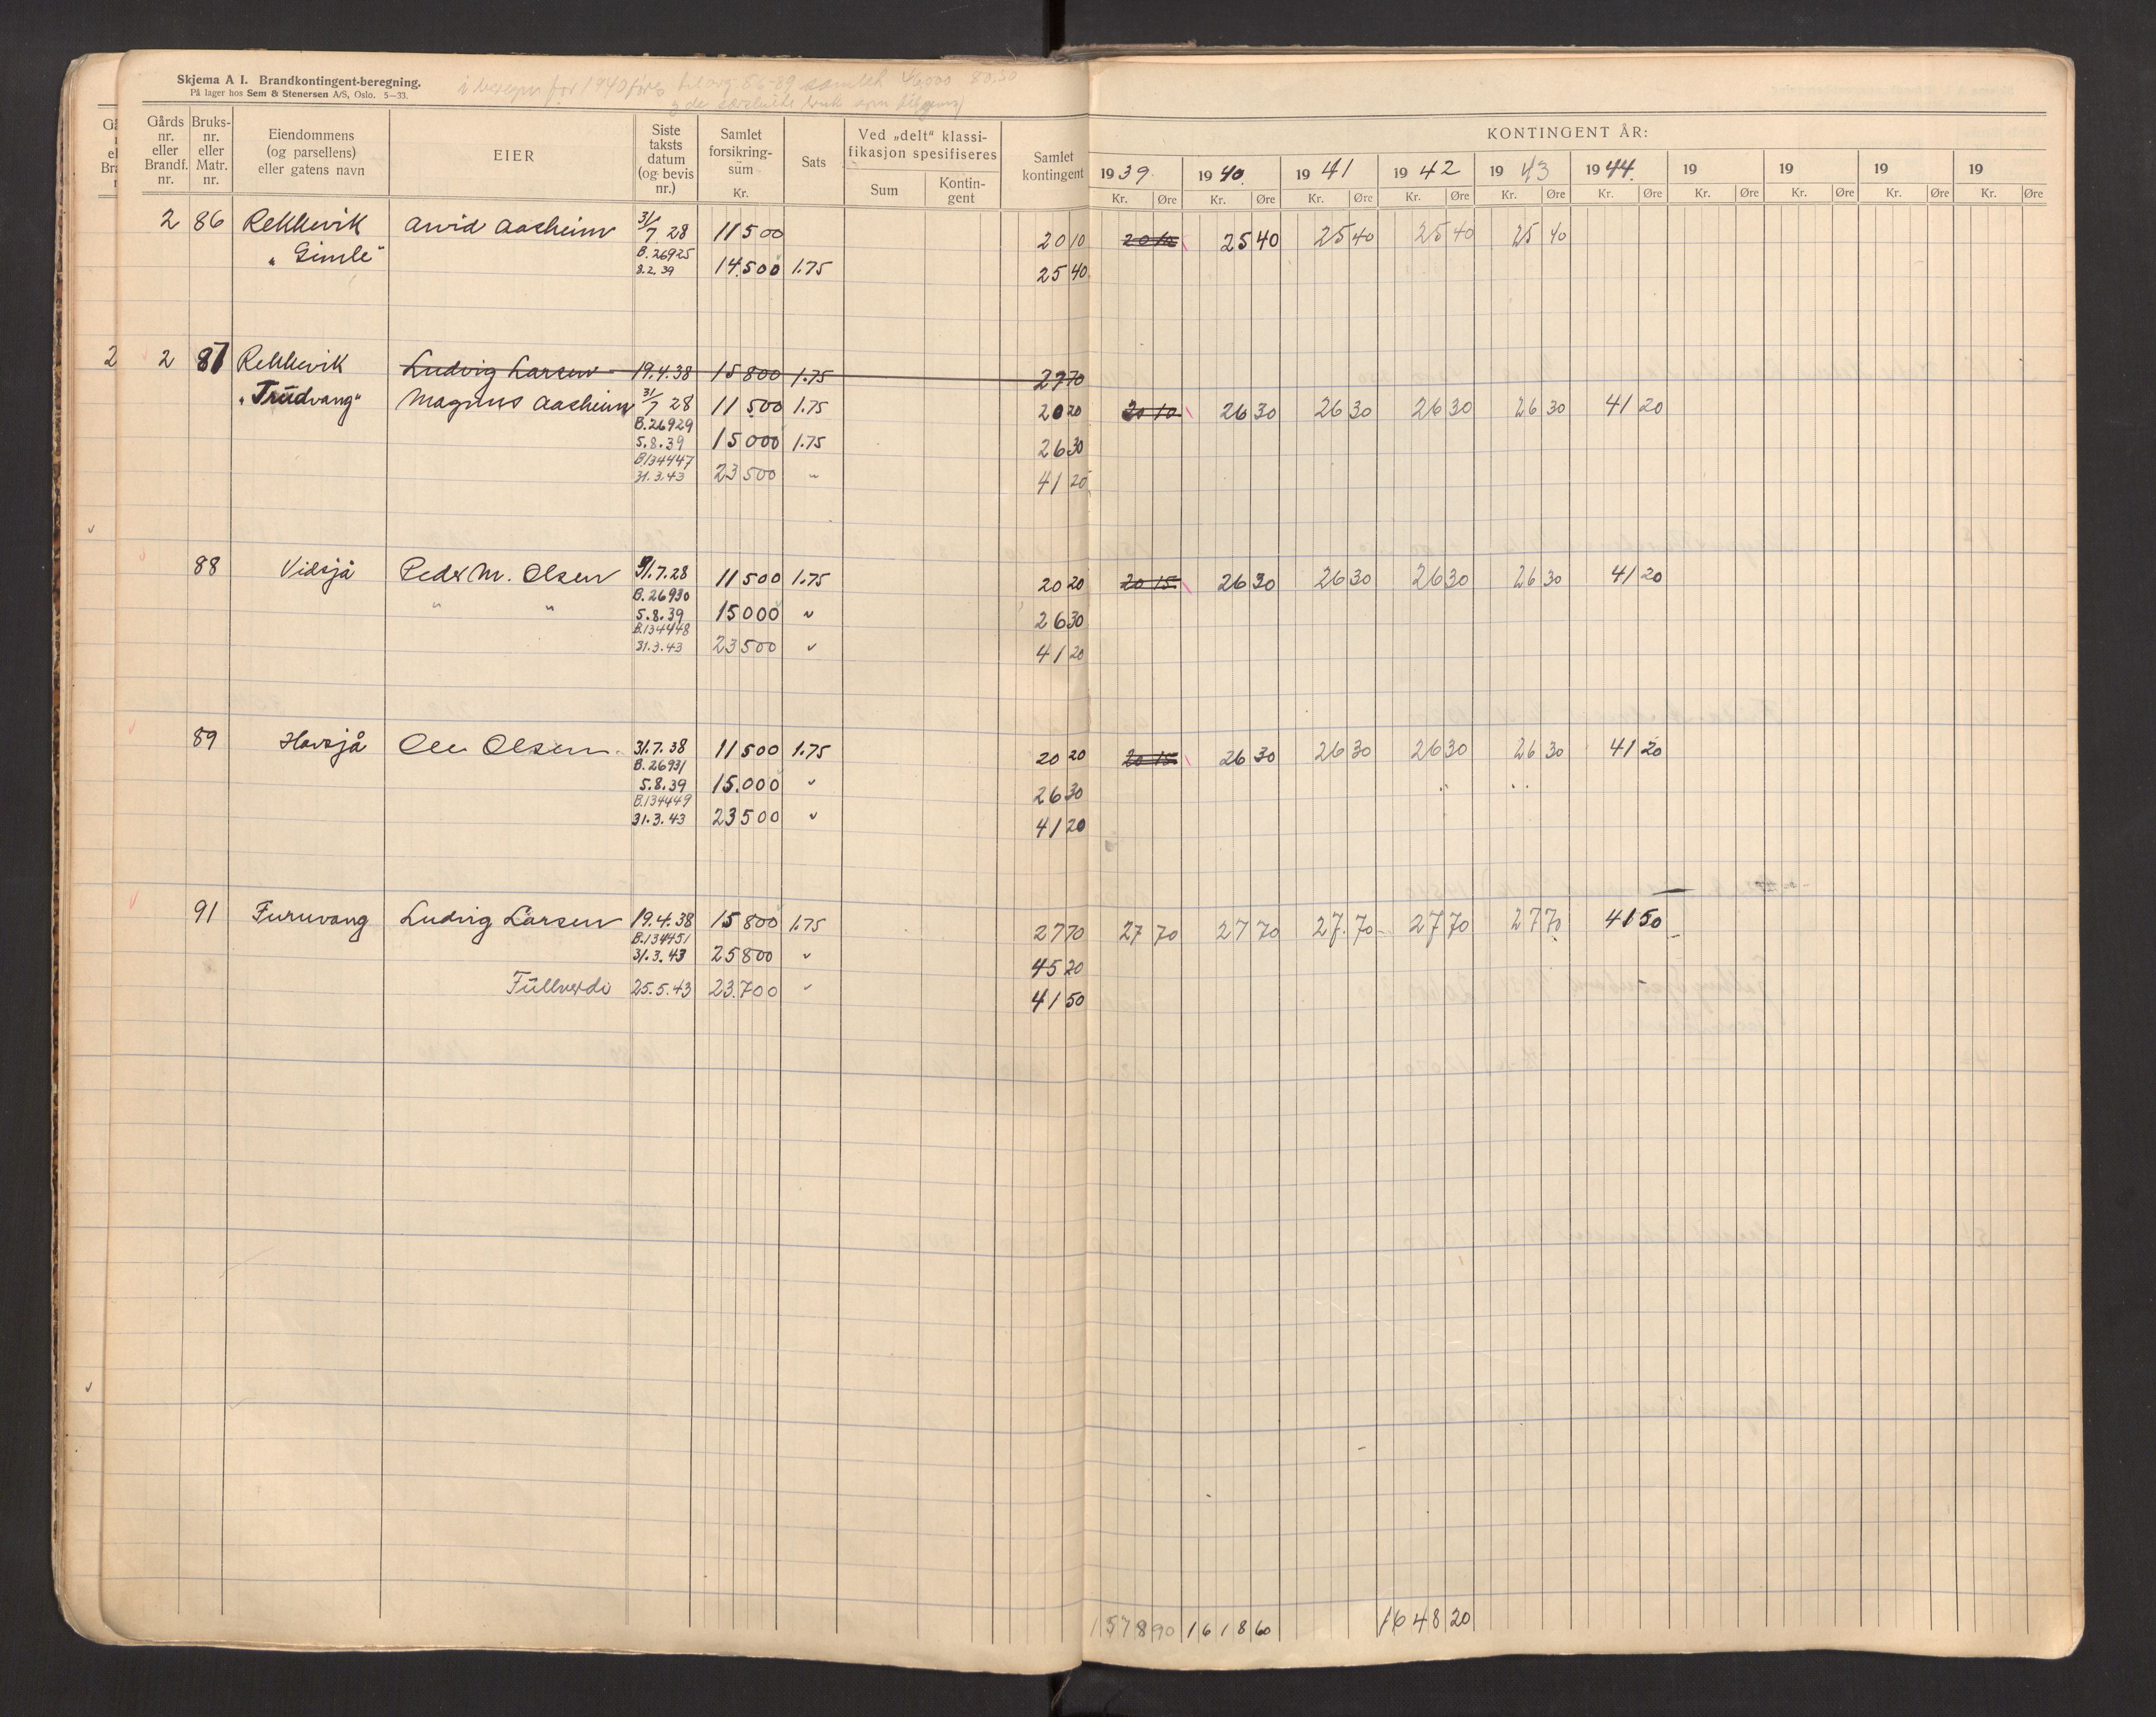 Skjema A I. Brandkontingent-beregning.
På lager hos Sem & Stenersen A/S, Oslo. 5—33.
i beregn for 1940 føres bel org. 86-89 samlet 46000 80.50
KONTINGENT ÅR:
Gårds nr. eller Brandf. nr. | Bruks- nr. eller Matr. nr. | Eiendommens (og parsellens) eller gatens navn | EIER | Siste taksts datum (og bevis nr.) | Samlet forsikring- sum Kr. | Sats | Ved „delt“ klassi- fikasjon spesifiseres Sum Kontin- gent | Samlet kontingent | 1939. | 1940. | 1941 | 1942 | 1943 | 1944. | 19 | 19 | 19 | 19
Kr. Øre Kr. Øre Kr. Øre Kr. Øre Kr. Øre Kr. Øre Kr. Øre Kr. Øre Kr. Øre Kr. Øre
2 86 Rekkevik Arvid Aasheim 31/7 28 11500 20 10 20 10 25 40 25 40 25 40 25 40
„Gimle“ B.26925
8.2.39 14.500 1.75 25 40
2 2 87 Rekkevik Ludvig Larsen 19.4.38 15800 1.75 27 70
„Trudvang“ Magnus Aasheim 31/7 28 11500 1.75 20 20 20 10 26 30 26 30 26 30 26 30 41 20
B.26929
5.8.39 15000 1.75 26 30
B134447
31.3.43 23500 „ 41 20
88 Vidsjå Peder M. Olsen 31.7.28 11500 1.75 20 20 20 15 26 30 26 30 26 30 26 30 41 20
B.26930
„ „ 5.8.39 15000 „ 26 30
B.134448
31.3.43 23500 „ 41 20
89 Havsjå Ole Olsen 31.7.38 11500 1.75 20 20 20 15 26 30 26 30 26 30 26 30 41 20
B.26931
5.8.39 15.000 „ 26 30
B.134449
31.3.43 23500 „ 41 20
91 Furuvang Ludvig Larsen 19.4.38 15800 1.75 27 70 27 70 27 70 27.70 27 70 27 70 41 50
B.134451
31.3.43 25800 „ 45 20
Fullverdi 25.5.43 23.700 „ 41 50
1578 90 1618 60 1648 20